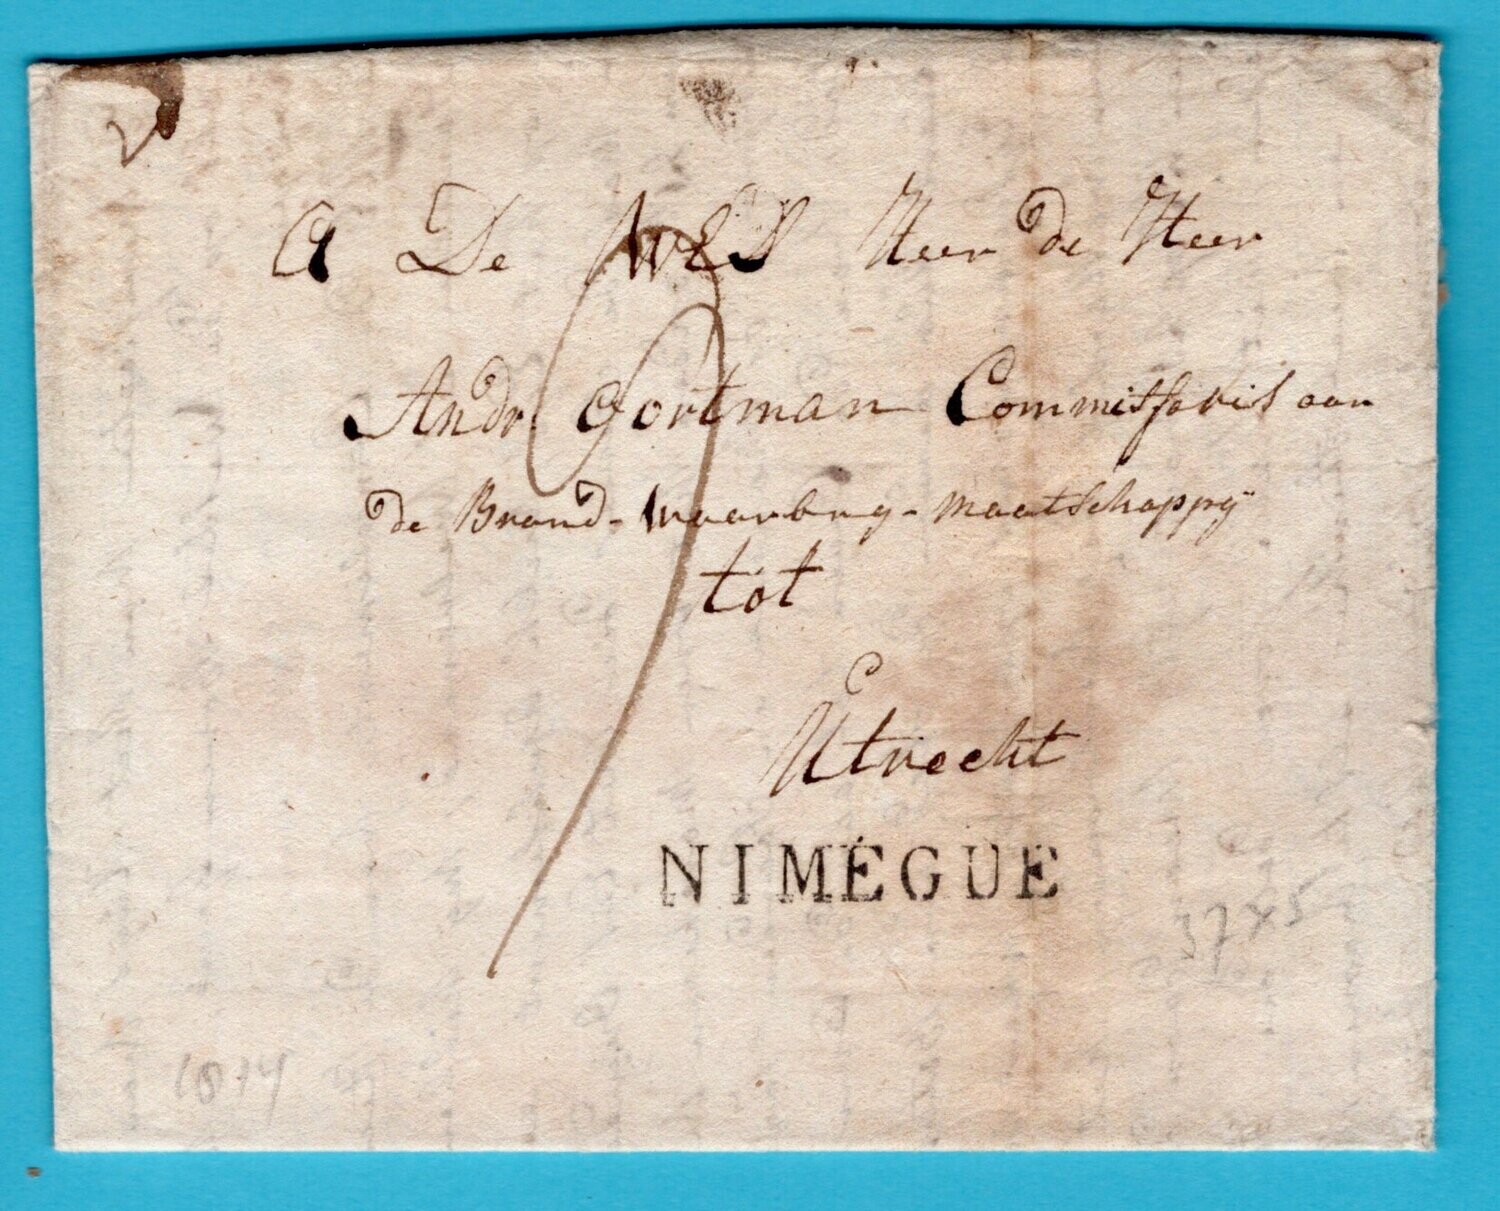 A De WES Heer de Heer
Andr. Gortman Commissaris aan
de Brand-Waarbrg-Maatschappÿ
tot
Utrecht
NIMÉGUE
37 x 5
1814